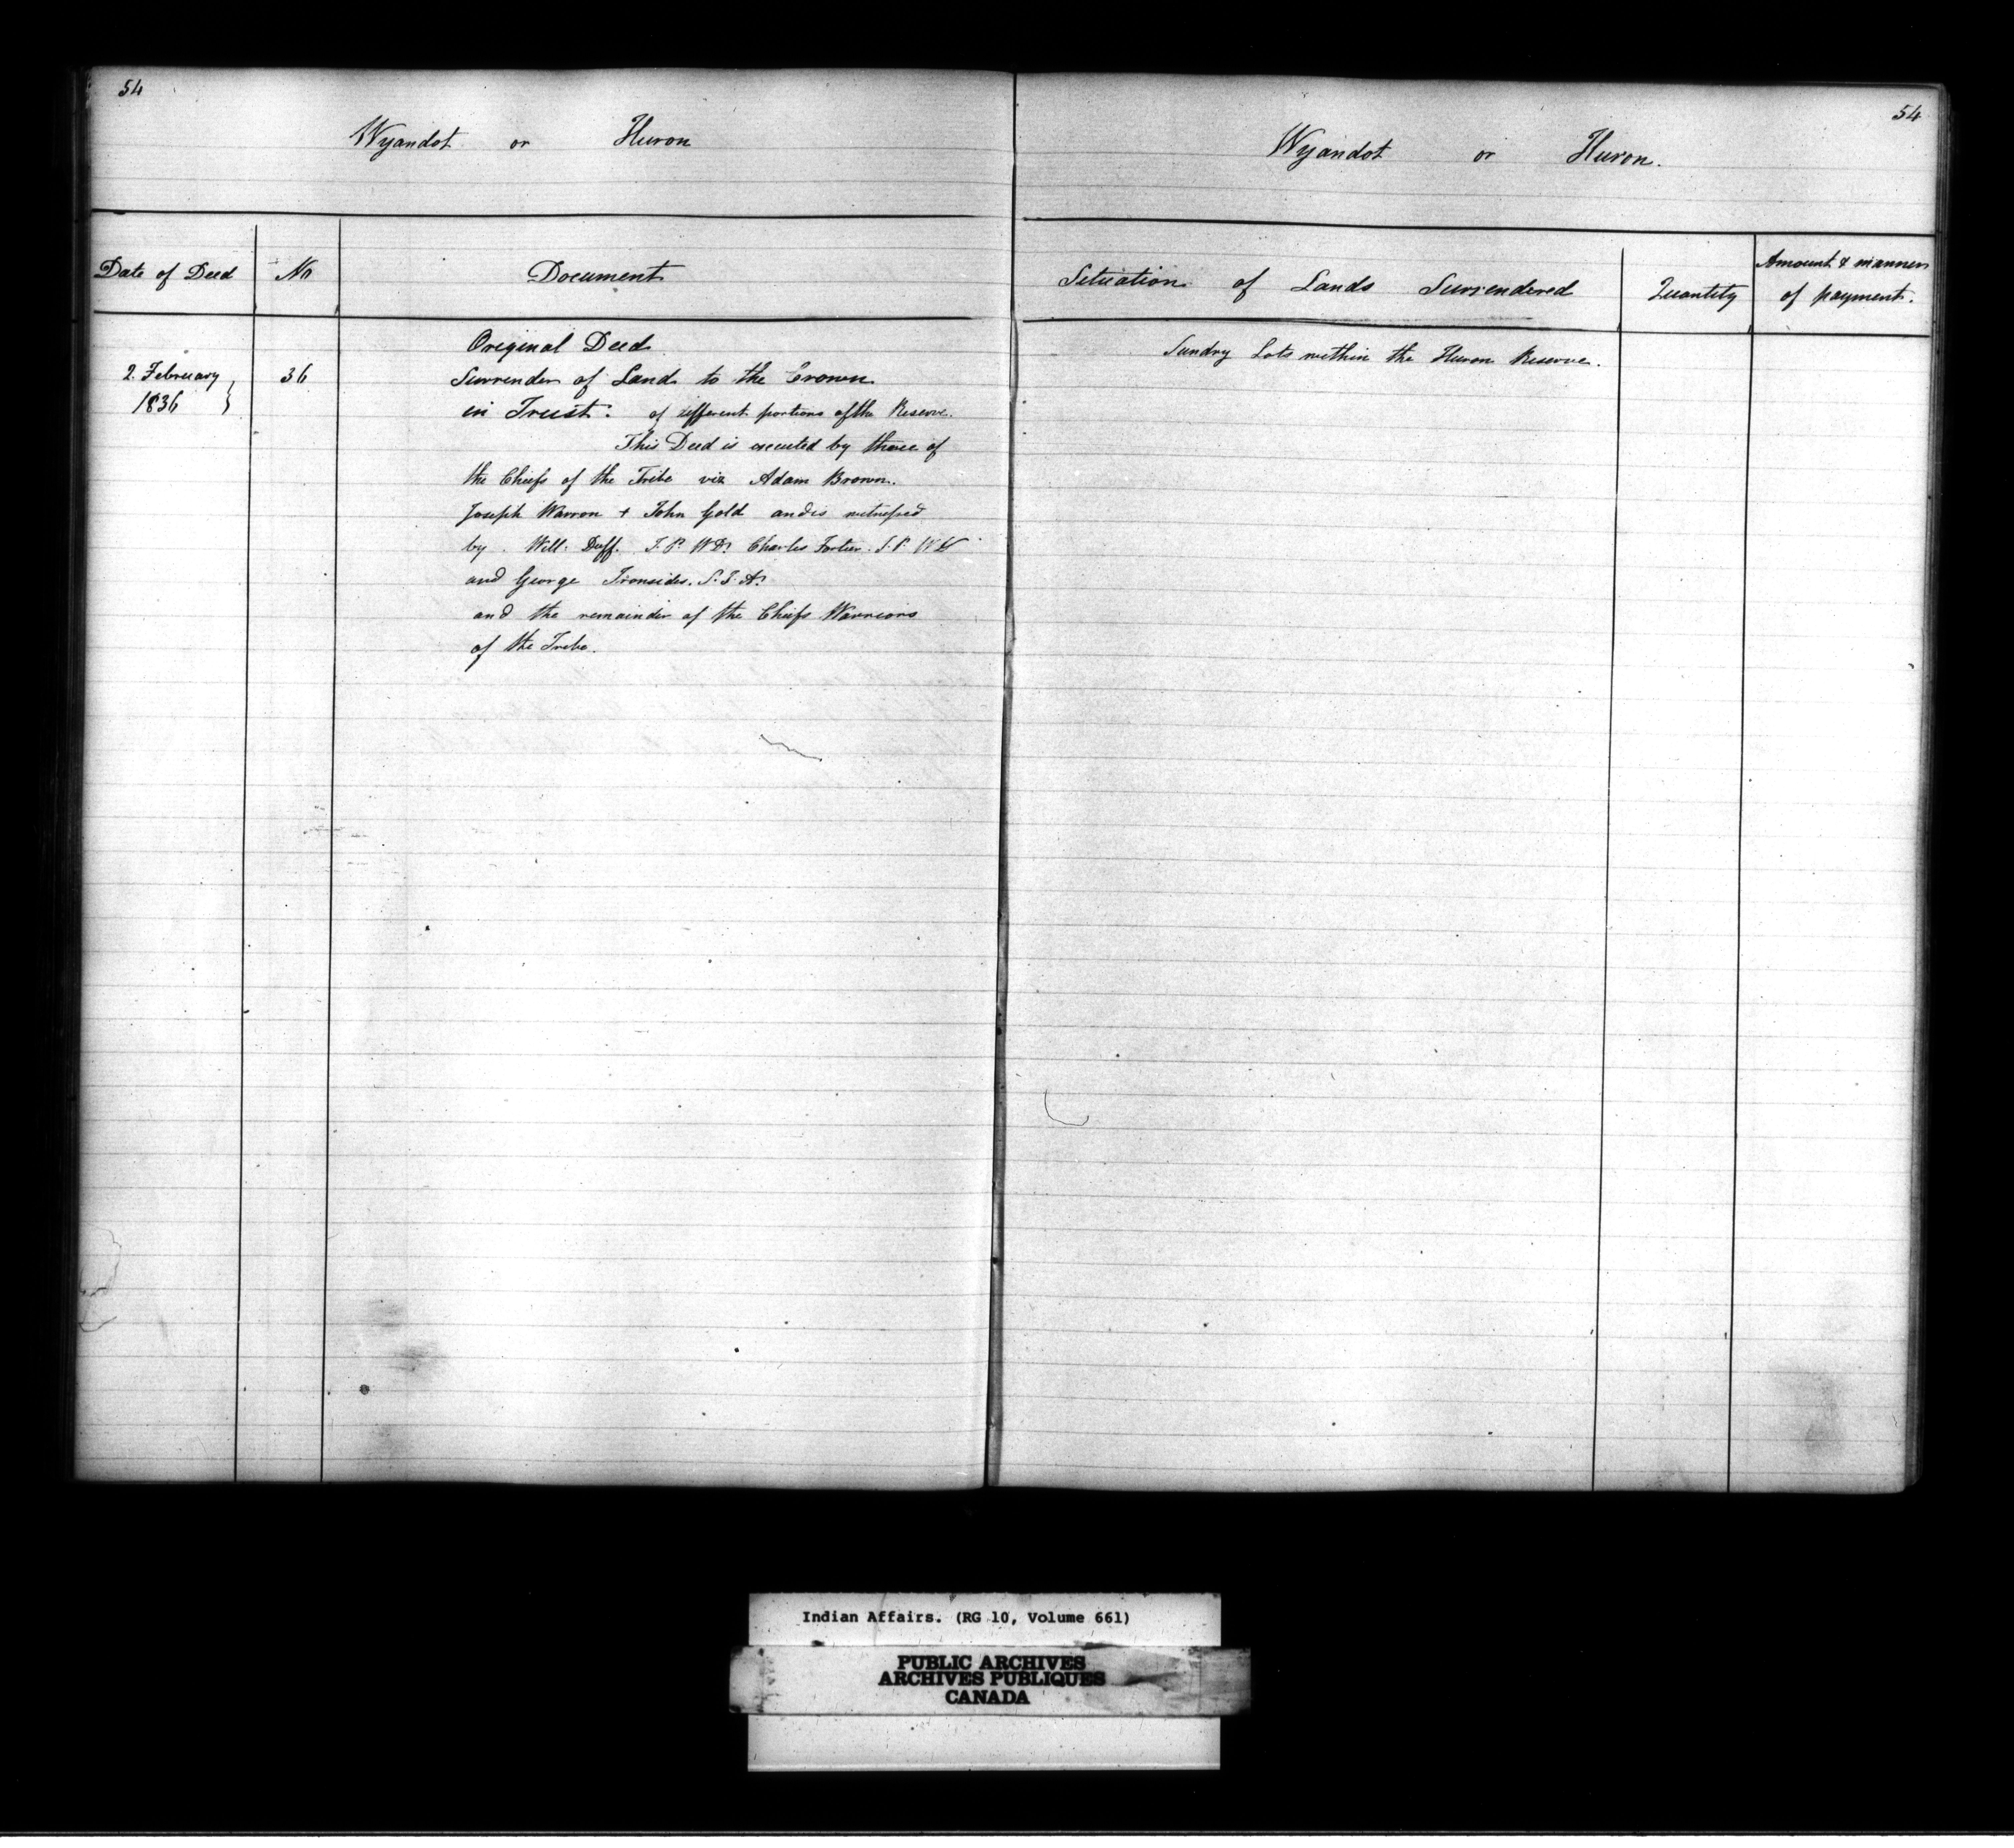 54
Wyandot or Huron
Date of Deed No Document
Original Deed
2. February 36 Surrender of Land to the Crown
1836 in Trust. of different portions of the Reserve.
This Deed is executed by three of
the Chiefs of the Tribe viz Adam Brown.
Joseph Warron + John Gold and is witnessed
by Will: Duff. J. P. W D. Charles Fortier. J. P. W D
and George Ironsides. S. I. A.
and the remainder of the Chiefs Warriors
of the Tribe.
54
Wyandot or Huron.
Situation of Lands Surrendered Quantity Amount & manner
of payment.
Sundry Lots within the Huron Reserve.
Indian Affairs. (RG 10, Volume 661)
PUBLIC ARCHIVES
ARCHIVES PUBLIQUES
CANADA